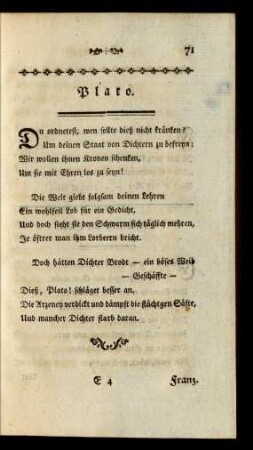 71
Plato.
Du ordnetest, wen sollte dieß nicht kränken?
Um deinen Staat von Dichtern zu befreyn:
Wir wollen ihnen Kronen schenken,
Um sie mit Ehren los zu seyn!
Die Welt giebt folgsam deinen Lehren
Ein wohlfeil Lob für ein Gedicht,
Und doch sieht sie den Schwarm sich täglich mehren,
Je öftrer man ihm Lorbern bricht.
Doch hätten Dichter Brodt — ein böses Weib
— Geschäffte —
Dieß, Plato! schläget besser an.
Die Arzeney verdickt und dämpft die flüchtgen Säfte,
Und mancher Dichter starb daran.
E 4
Franz.